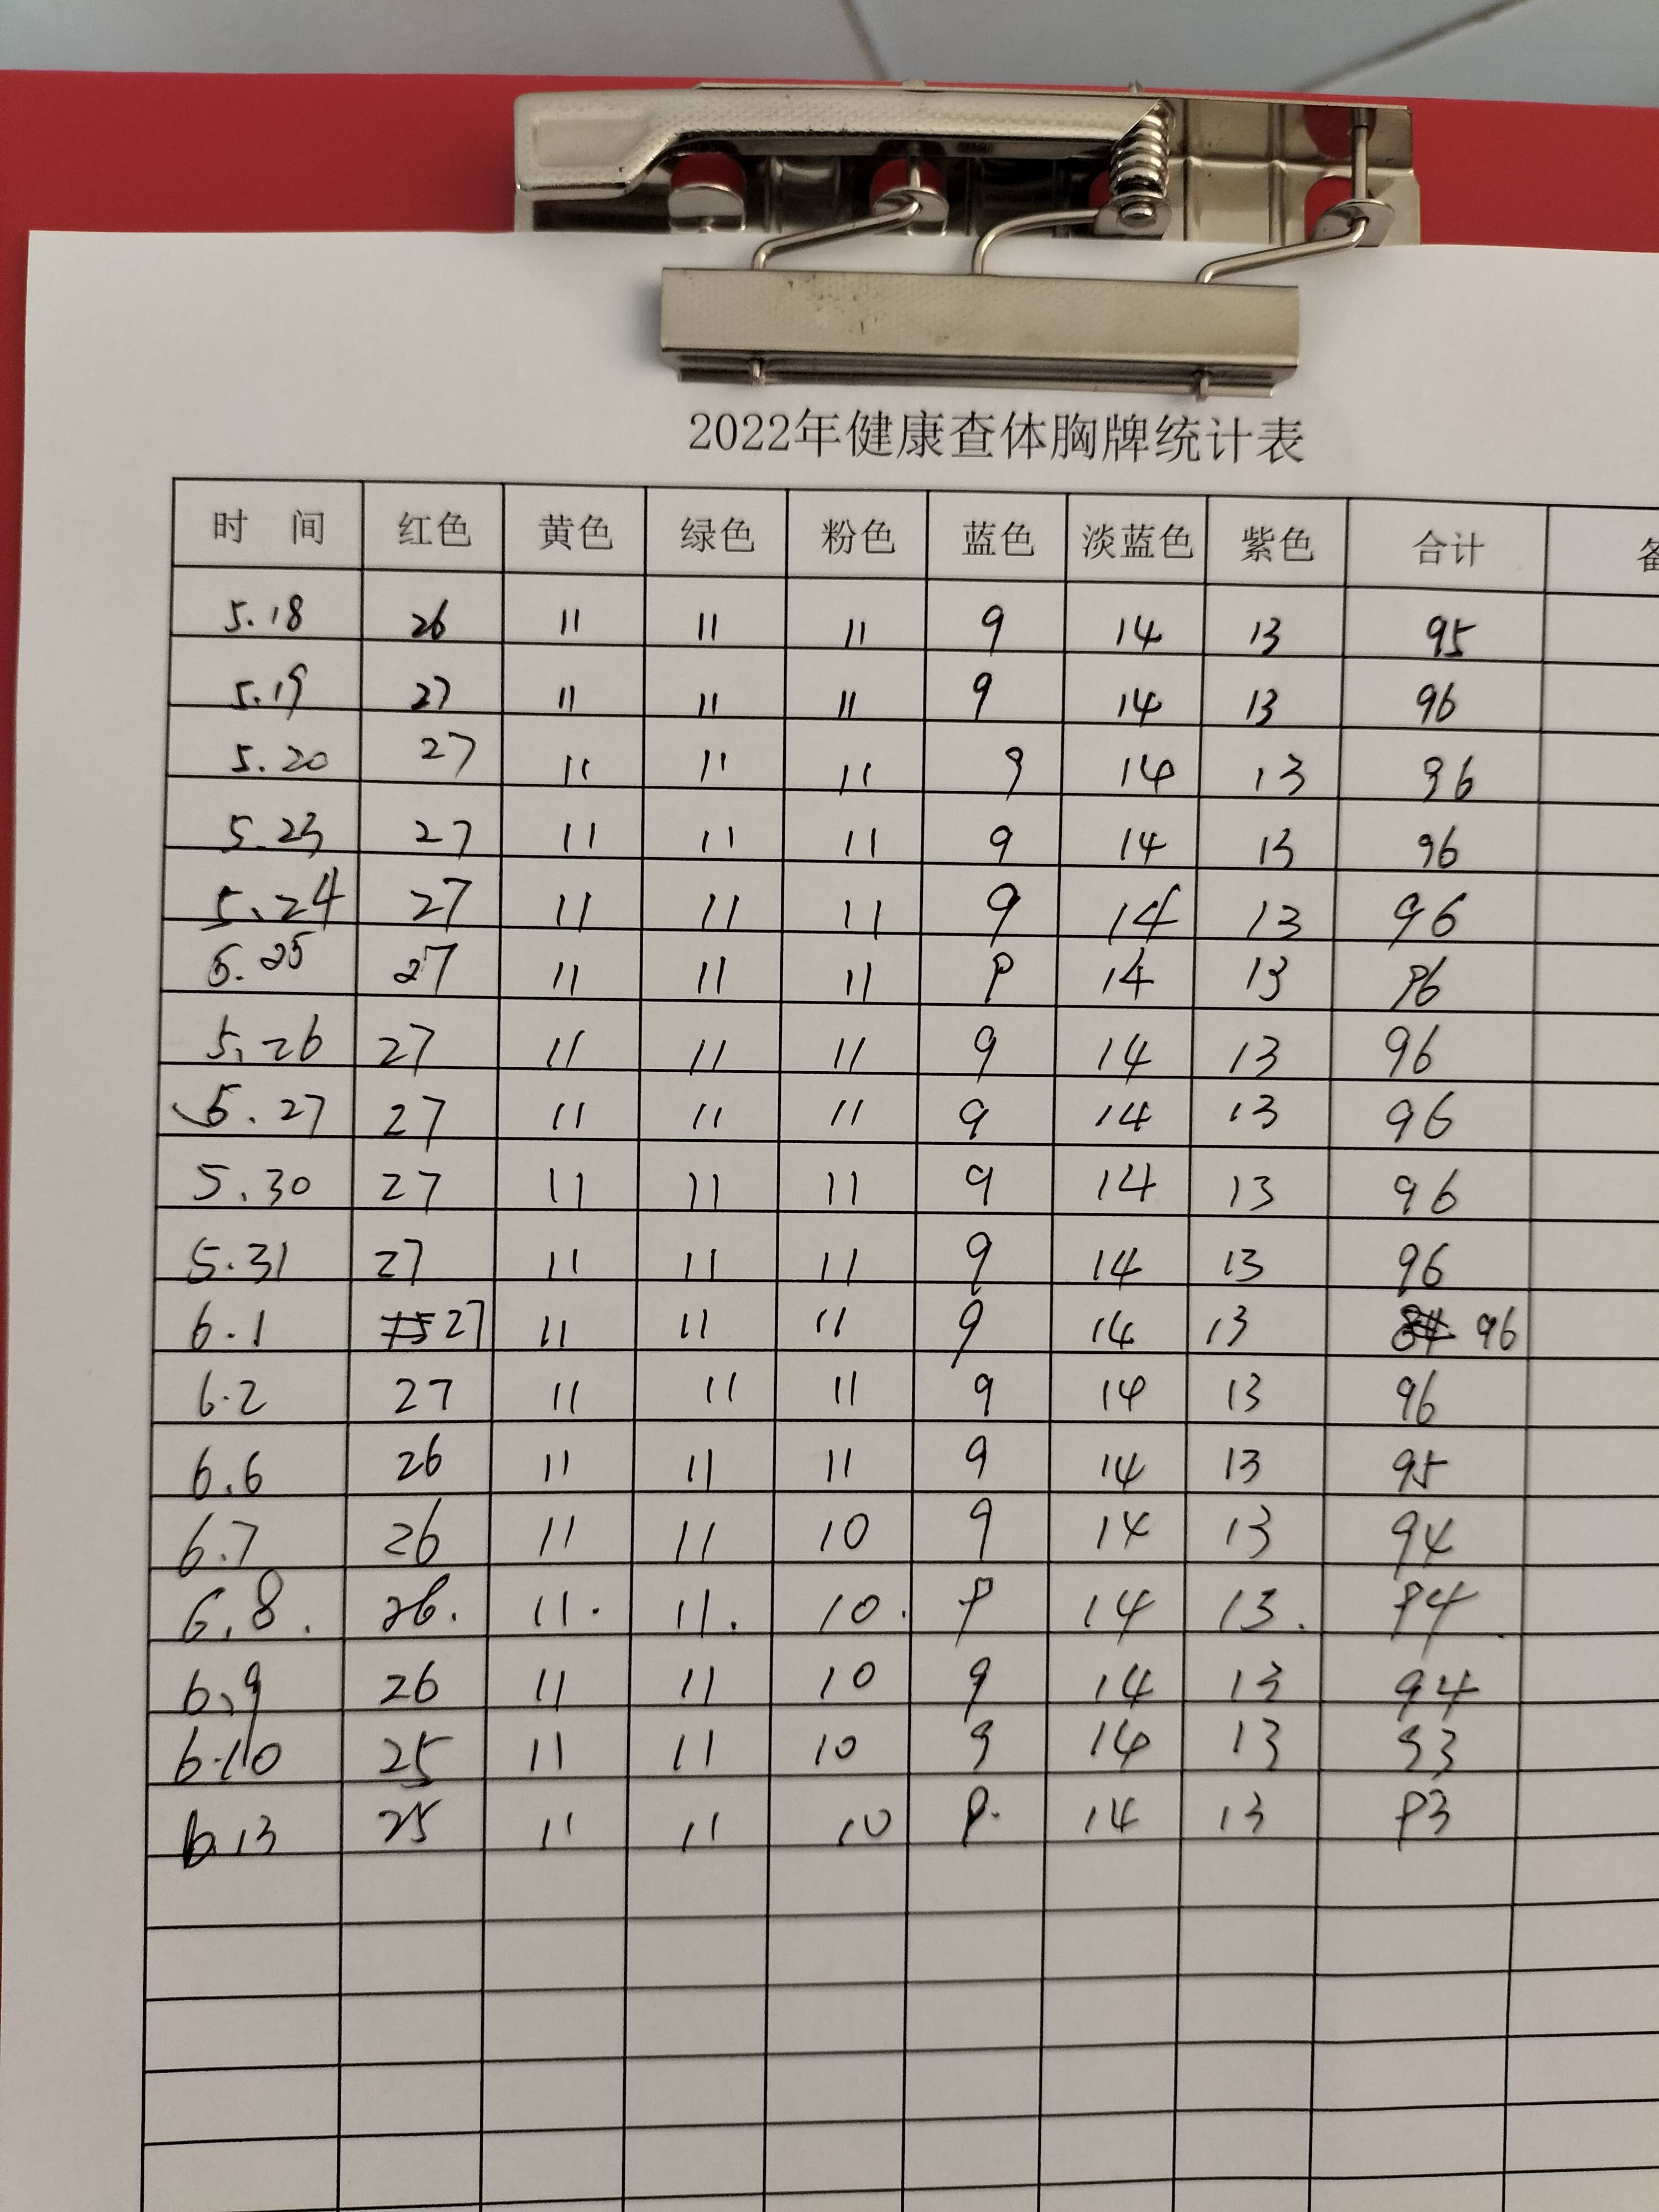 2022年健康查体胸牌统计表
时 间 红色 黄色 绿色 粉色 蓝色 淡蓝色 紫色 合计 备
5.18 26 11 11 11 9 14 13 95
5.19 27 11 11 11 9 14 13 96
5.20 27 11 11 11 9 14 13 96
5.23 27 11 11 11 9 14 13 96
5.24 27 11 11 11 9 14 13 96
5.25 27 11 11 11 9 14 13 96
5.26 27 11 11 11 9 14 13 96
5.27 27 11 11 11 9 14 13 96
5.30 27 11 11 11 9 14 13 96
5.31 27 11 11 11 9 14 13 96
6.1 27 11 11 11 9 14 13 96
6.2 27 11 11 11 9 14 13 96
6.6 26 11 11 11 9 14 13 95
6.7 26 11 11 10 9 14 13 94
6.8. 26. 11. 11. 10. 9 14 13. 94.
6.9 26 11 11 10 9 14 13 94
6.10 25 11 11 10 9 14 13 93
6.13 25 11 11 10 9. 14 13 93